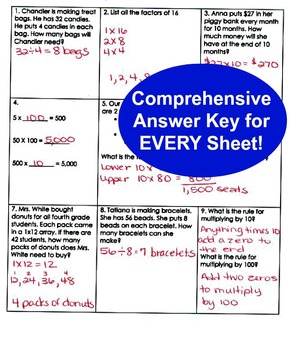 1. Chandler is making treat
bags. He has 32 candies.
He puts 4 candies in
each bag. How many bags will
Chandler need?
32÷4=8 bags
2. List all the factors of 16
1x16
2x8
4x4
1, 2, 4,
3. Anna puts $27 in her
piggy bank every month
for 10 months. How
much money will she
have at the end of 10
months?
$27x10=$270
4.
5 x 100 = 500
50 X 100 = 5,000
500 x 10 = 5,000
5. Our
are 2
What is the
Lower 10x
Upper 10x80 = 800
1,500 seats
Comprehensive
Answer Key for
EVERY Sheet!
7. Mrs. White bought
donuts for all fourth grade
students. Each pack came
in a 1x12 array. If there are
42 students, how many
packs of donuts does Mrs.
White need to buy?
1x12=12
1 2 3 4
12, 24, 36, 48
4 packs of donuts
8. Tatiana is making bracelets.
She has 56 beads. She puts 8
beads on each bracelet. How
many bracelets can she
make?
56÷8=7 bracelets
9. What is the rule for
multiplying by 10?
Anything times 10
add a zero to
the end
What is the rule for
multiplying by 100?
Add two zeros
to multiply
by 100